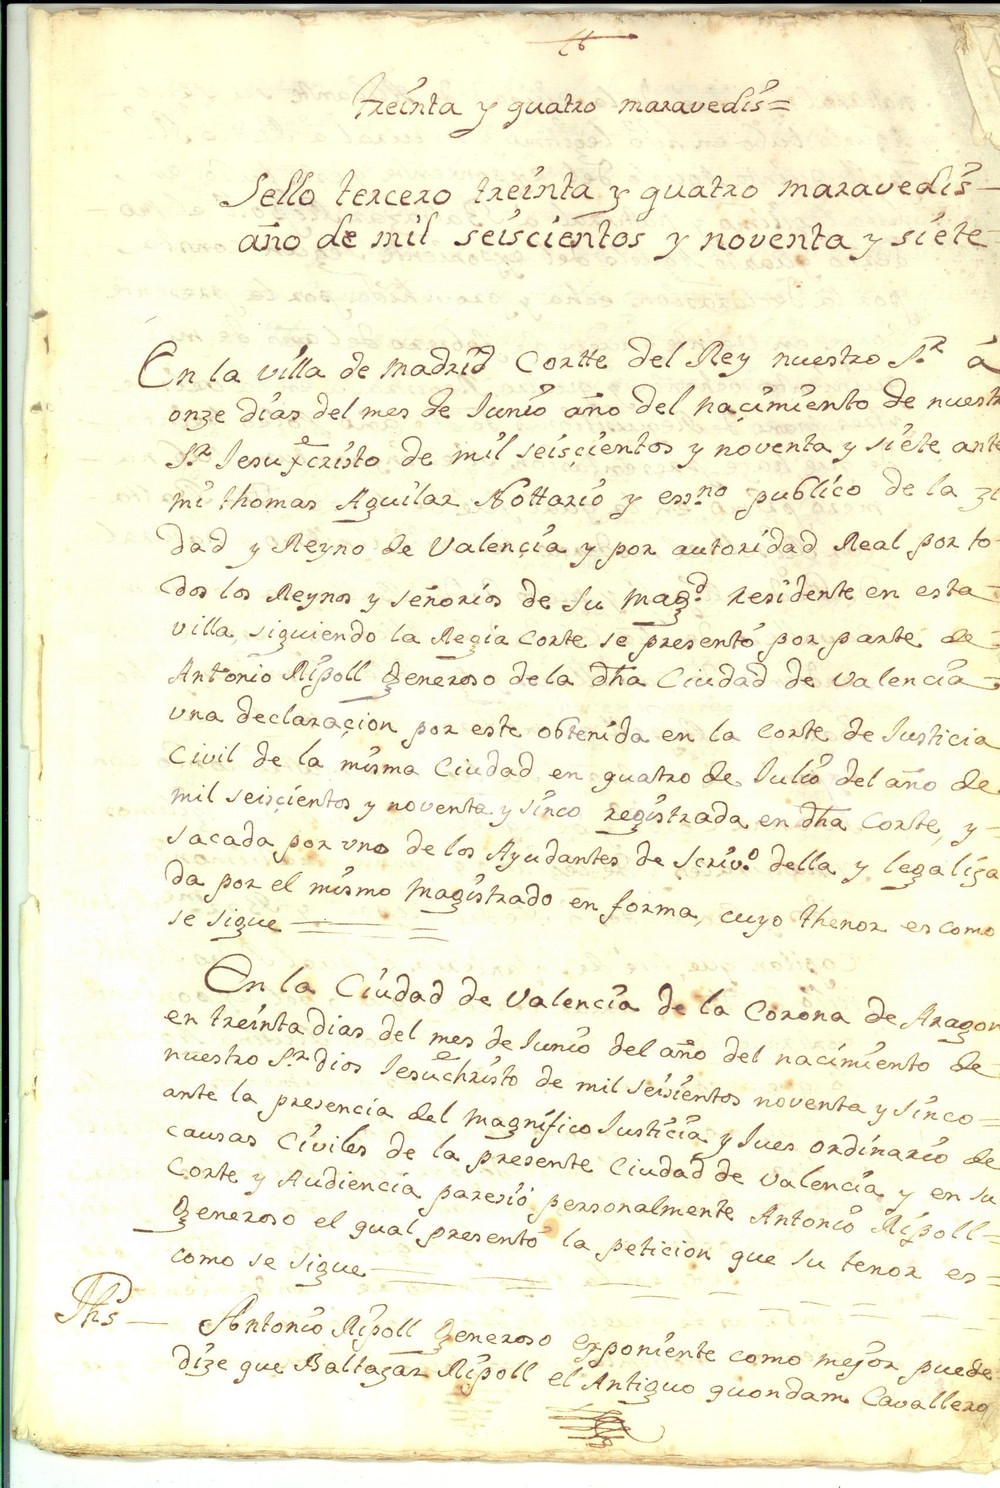 treinta y quatro maravedis=
Sello tercero treinta y quatro maravedis—
año de mil seiscientos y noventa y siete—
En la villa de Madrid Cortte del Rey nuestro S.r á
onze dias del mes de Junio año del naçimiento de nuestr
S.r Jesuxcristo de mil seisçientos y noventa y siete ante
mi thomas Aguilar Nottario y ess.no publico de la zi
dad y Reyno de Valençia y por autoridad Real por to-
dos los Reynos y señorios de Su Mag.d residente en esta
villa, siguiendo la Regia Corte se presentó por parte de-
Antonio Ripoll Generoso de la dha Ciudad de Valencia-
vna declaraçion por este obtenida en la Corte de Justicia
Civil de la misma Ciudad en quatro de Julio del año de
mil seisçientos y noventa y sinco registrada en dha Corte, y-
sacada por vno de los Ayudantes de Scriv.o della y legaliza
da por el mismo Magistrado en forma, cuyo thenor es como
se sigue
En la Ciudad de Valencia de la Corona de Aragon
en treinta dias del mes de Junio del año del nacimiento de-
nuestro S.r dios Jesuchristo de mil seisientos noventa y sinco-
ante la presencia del Magnifico Justicia y Jues ordinario de
causas Civiles de la presente Ciudad de Valencia y en su
Corte y Audiencia paresió personalmente Antonio Ripoll=
Generoso el qual presentó la peticion que su tenor es=
como se sigue
Jhs— Antonio Ripoll Generoso exponiente como mejor puede
dize que Baltazar Ripoll el Antiguo quondam Cavallero